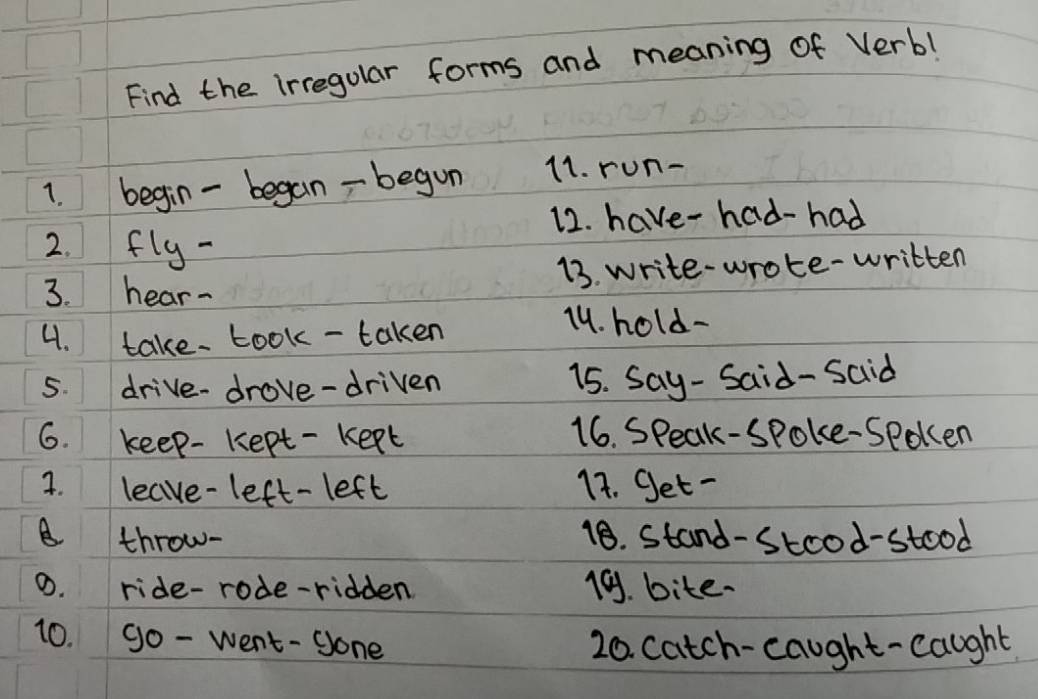 Find the irregular forms and meaning of Verb!
1. begin - began - begun
2. fly -
3. hear -
4. take - took - taken
5. drive - drove - driven
6. keep - kept - kept
7. leave - left - left
8 throw -
9. ride - rode - ridden
10. go - went - gone
11. run -
12. have - had - had
13. write - wrote - written
14. hold -
15. Say - Said - Said
16. Speak - Spoke - Spoken
17. get -
18. Stand - Stood - stood
19. bite -
20. catch - caught - caught